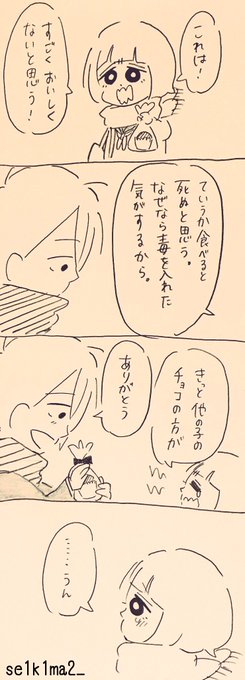 これは！
すごくおいしく
ないと思う！
ていうか食べると
死ぬと思う。
なぜなら毒を入れた
気がするから。
きっと他の子の
チョコの方が
ありがとう
……うん
se1k1ma2_